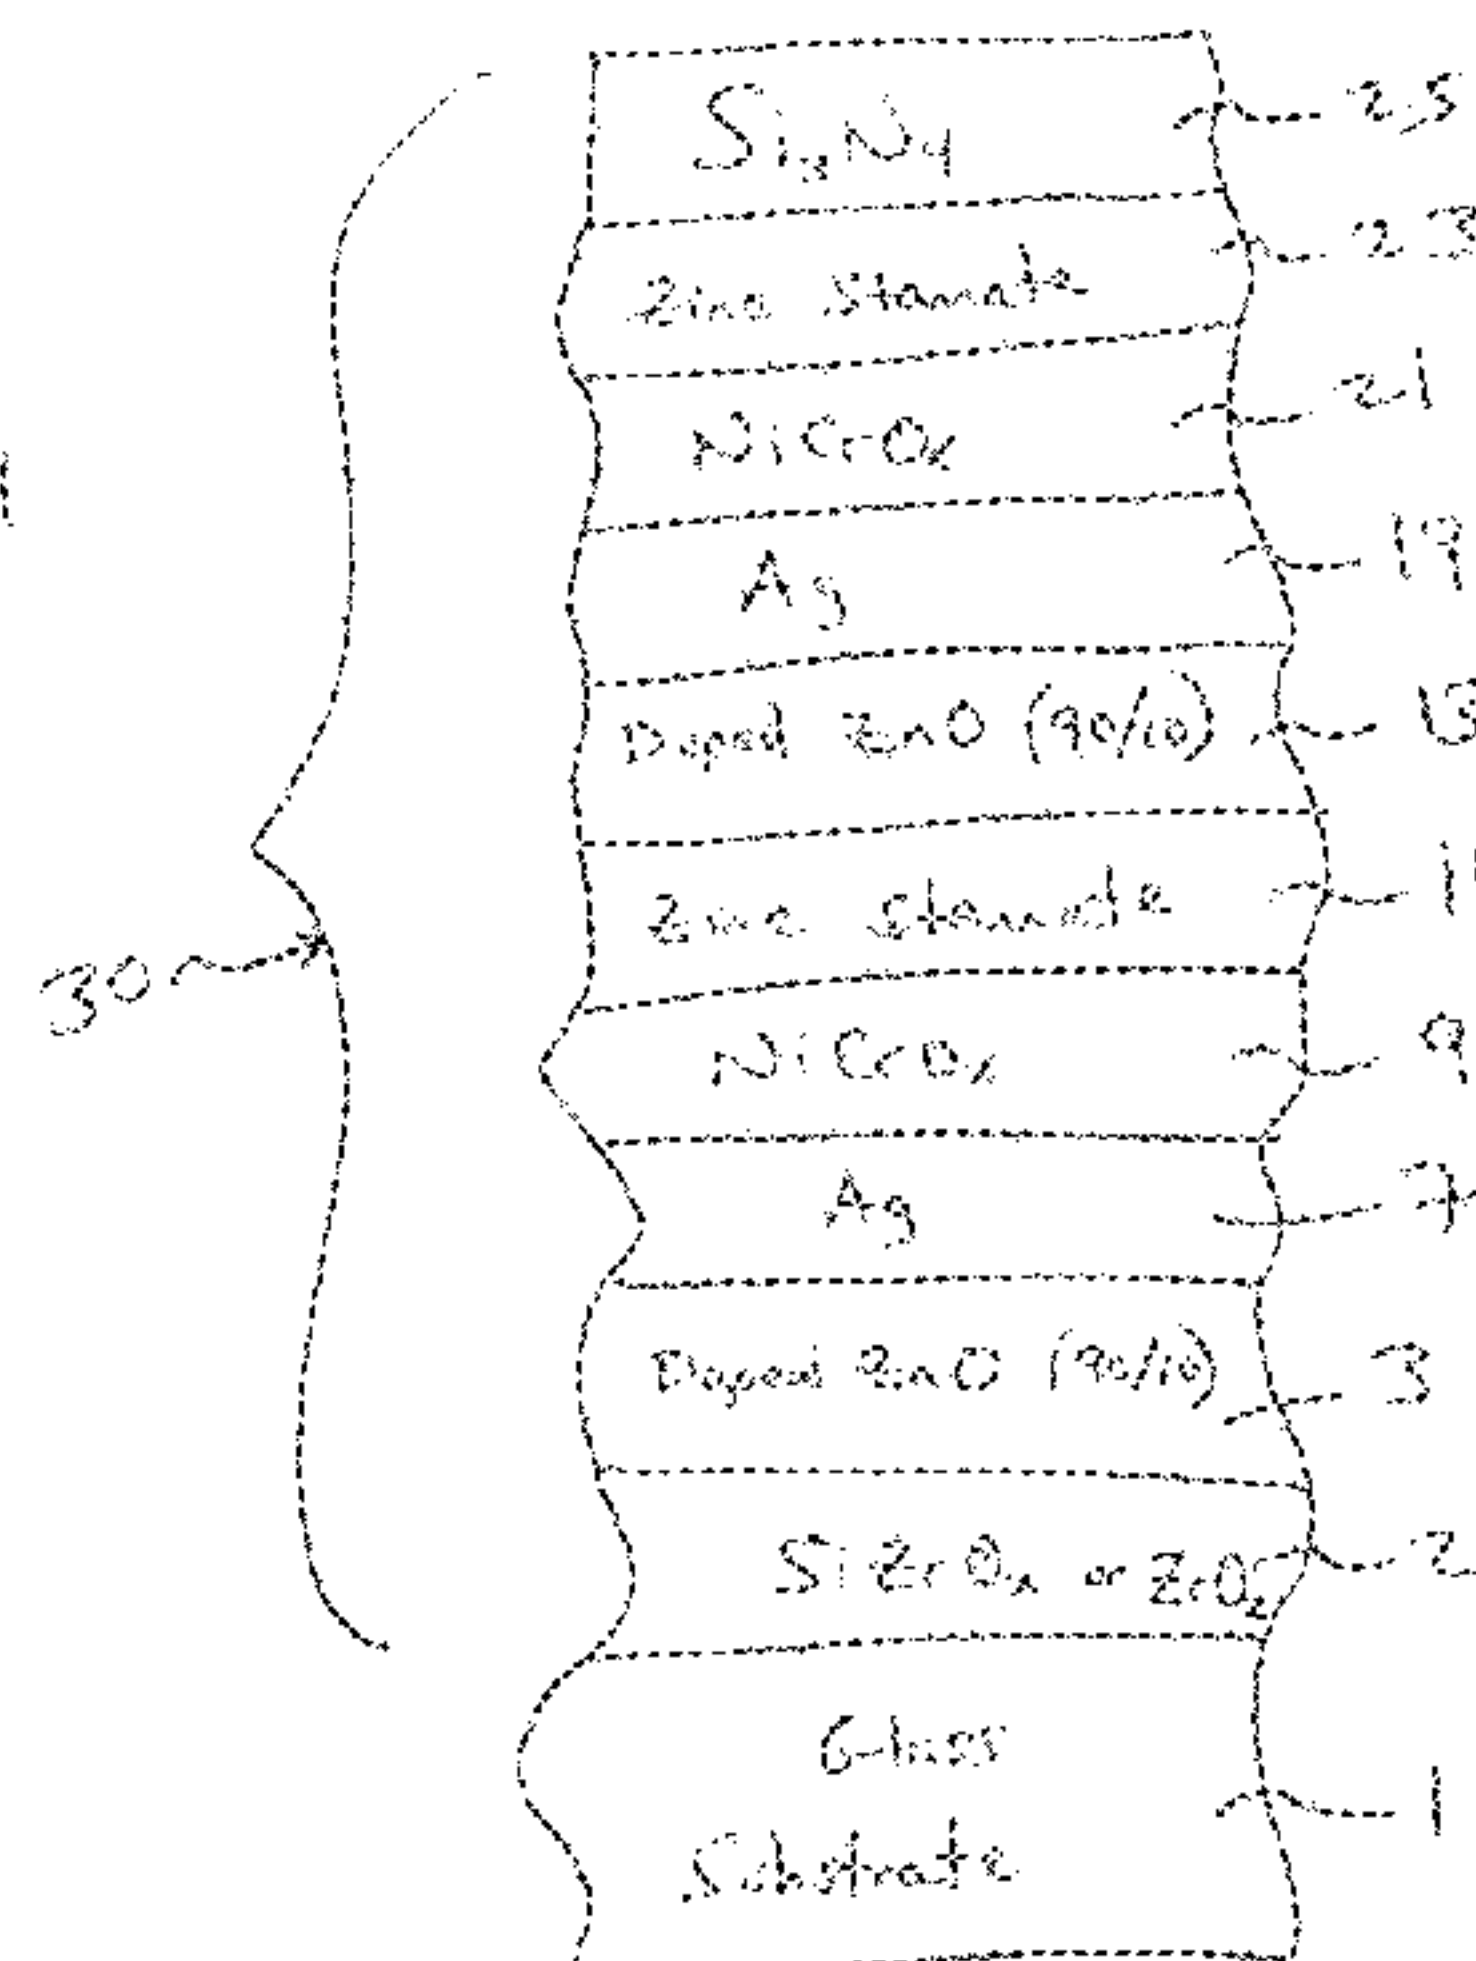 Si3N4 25
Zinc Stannate 23
NiCrOx 21
Ag 19
Doped ZnO (90/10) 13
Zinc Stannate 11
NiCrOx 9
30
Ag 7
Doped ZnO (90/10) 3
SiZrOx or ZrO2 2
Glass 
Substrate 1